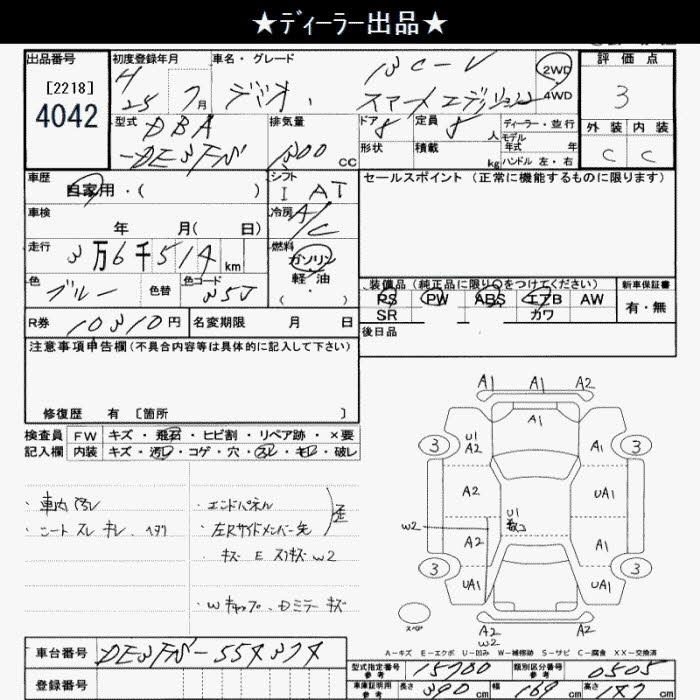 ★ディーラー出品★
出品番号
[2218]
4042
初度登録年月
H
25 7月
車名・グレード
13C-V
デミオ、スマートエディション
2WD
4WD
評価点
3
外装 内装
C C
型式 DBA
-DE3FS
排気量
1300 CC
ドア
形状
定員 人
積載 kg
ディーラー・並行
モデル
年式 年
ハンドル 左・右
車歴
自家用・( )
シフト
I AT
車検
年 月( 日)
冷房 A/C
走行
3万6千514 km
燃料
ガソリン
軽油
( ・ )
色
ブルー
色替
色コード
35J
セールスポイント (正常に機能するものに限ります)
装備品(純正品に限り○をつけてください)
PS PW ABS エアB AW
SR カワ
新車保証書
有・無
後日品
R券 10310円
名変期限 月 日
注意事項申告欄(不具合内容等は具体的に記入して下さい)
修復歴 有 〔箇所 〕
検査員
記入欄
FW キズ・飛石・ヒビ割・リペア跡・×要
内装 キズ・汚レ・コゲ・穴・スレ・キレ・破レ
・車内汚レ
・シートスレ キレ、ヘタリ
・エンドパネル
・左Rサイドメンバー先
キズ E スリキズ W2
・Wキャップ、Dミラーキズ
A1 A1 A2
A1
3 U1 A2 A1 3
A2 UA1
U1
W2
A2 A1
3 UA1 UA1 3
スペア
A2 A2
W2
A-キズ E-エクボ U-凹み W-補修跡 S-サビ C-腐食 XX-交換済
車台番号 DE3FS-554374
登録番号
型式指定番号
参考
15700
類別区分番号
参考
0505
車庫証明用
参考
長さ 390 cm 幅 169 cm 高さ 147 cm